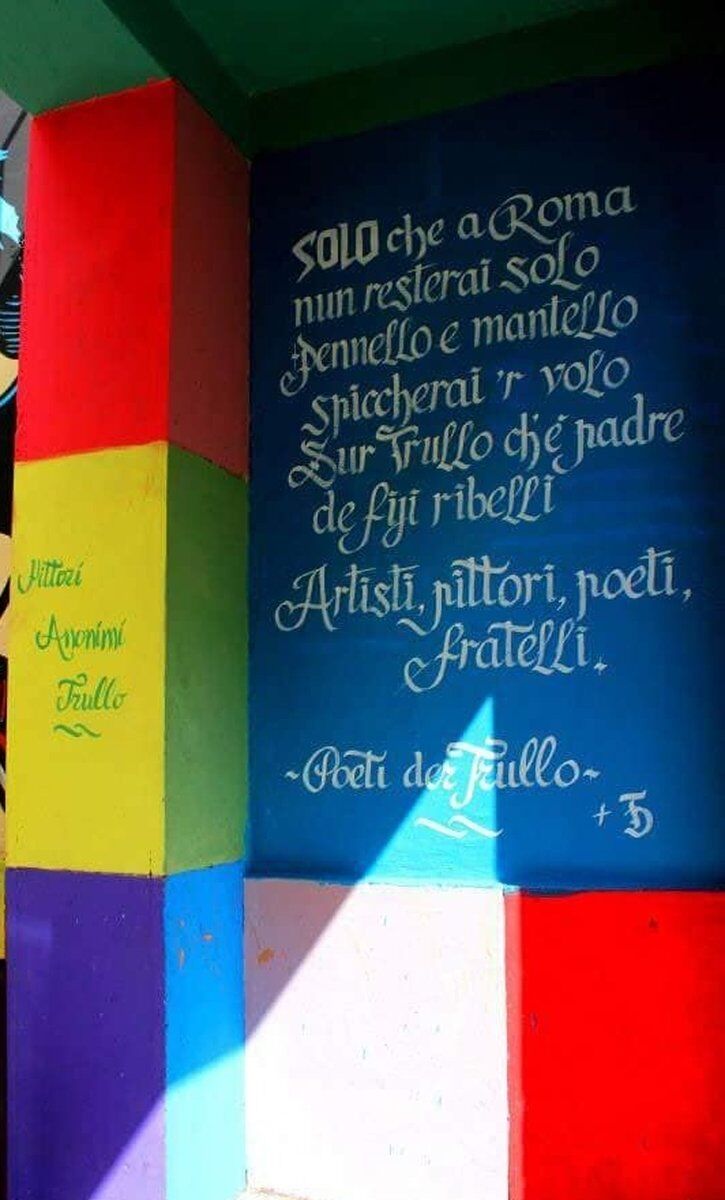 SOLO che a Roma
nun resterai solo
pennello e mantello
spiccherai 'r volo
Sur Trullo ch'è padre
de fiji ribelli
Artisti, pittori, poeti,
fratelli.
~Poeti der Trullo~
Pittori
Anonimi
Trullo